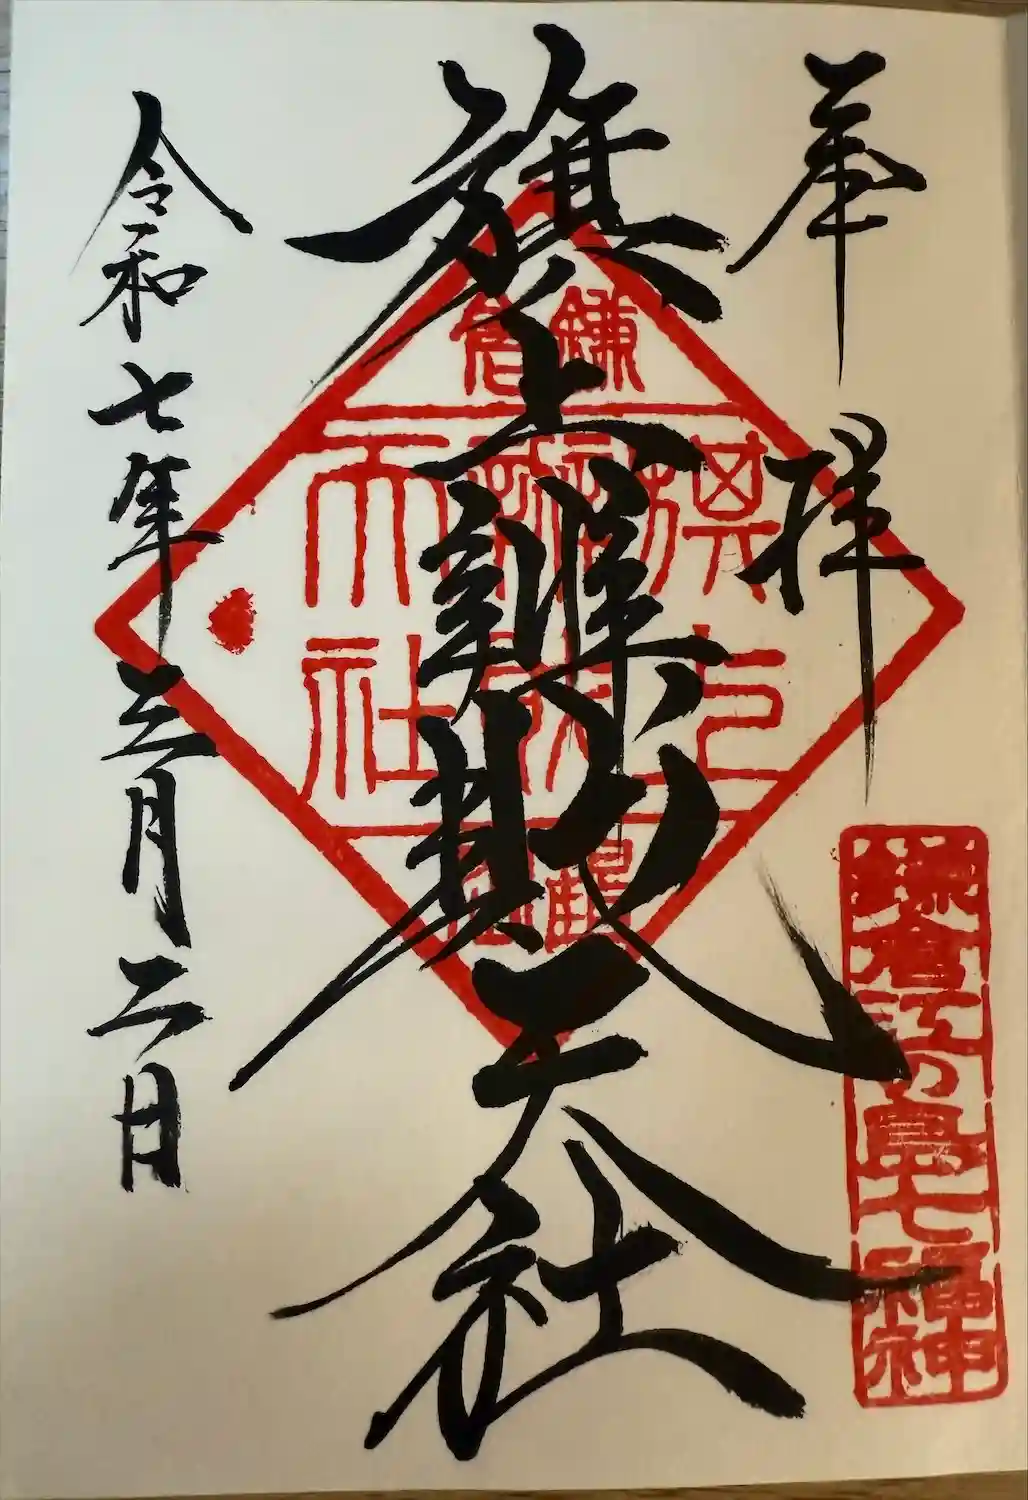 奉拝
鎌倉江の島七福神
旗上辨財天社
鎌倉
旗上
辨財
天社
令和七年三月二日